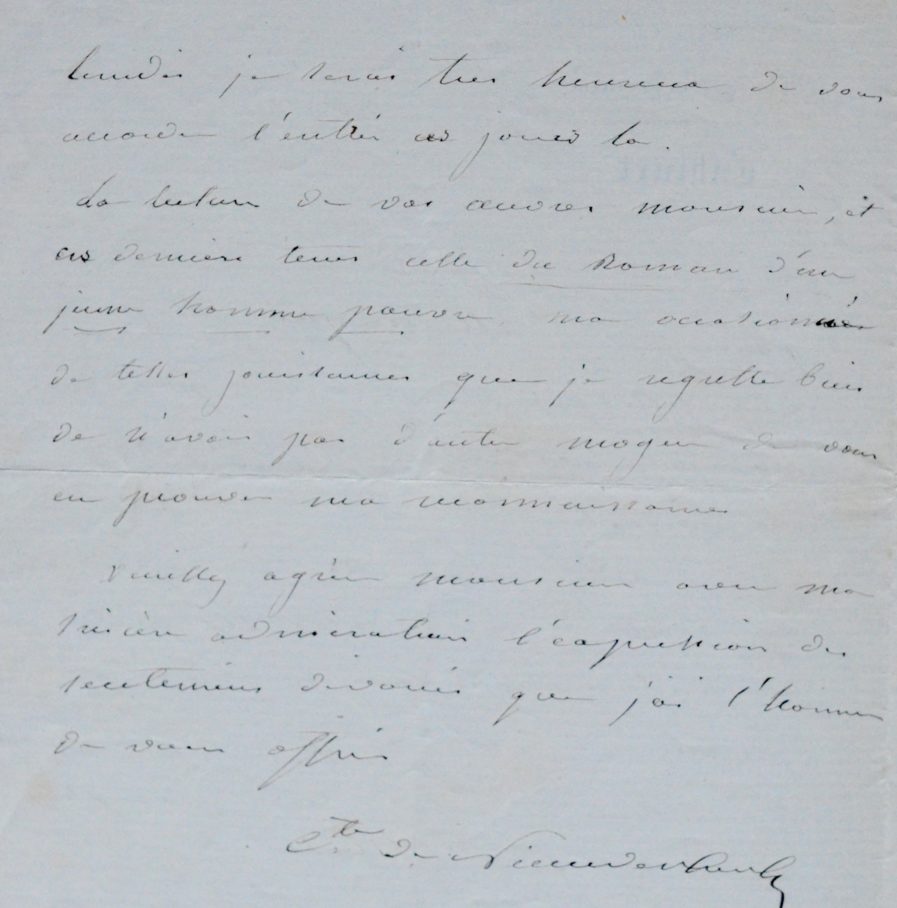 lundis je serais très heureux de vous
accorder l'entrée ces jours la.
La lecture de vos œuvres monsieur, et
ces derniers tems celle du Roman d'un
jeune homme pauvre ma occasionnés
de telles jouissances que je regrette bien
de n'avoir pas d'autre moyen de vous
en prouver ma reconnaissance
Veuillez agréer monsieur avec ma
sincère admiration l'expression des
sentimens dévoués que j'ai l'honneur
de vous offrir
Cte de Nieuwerkerke